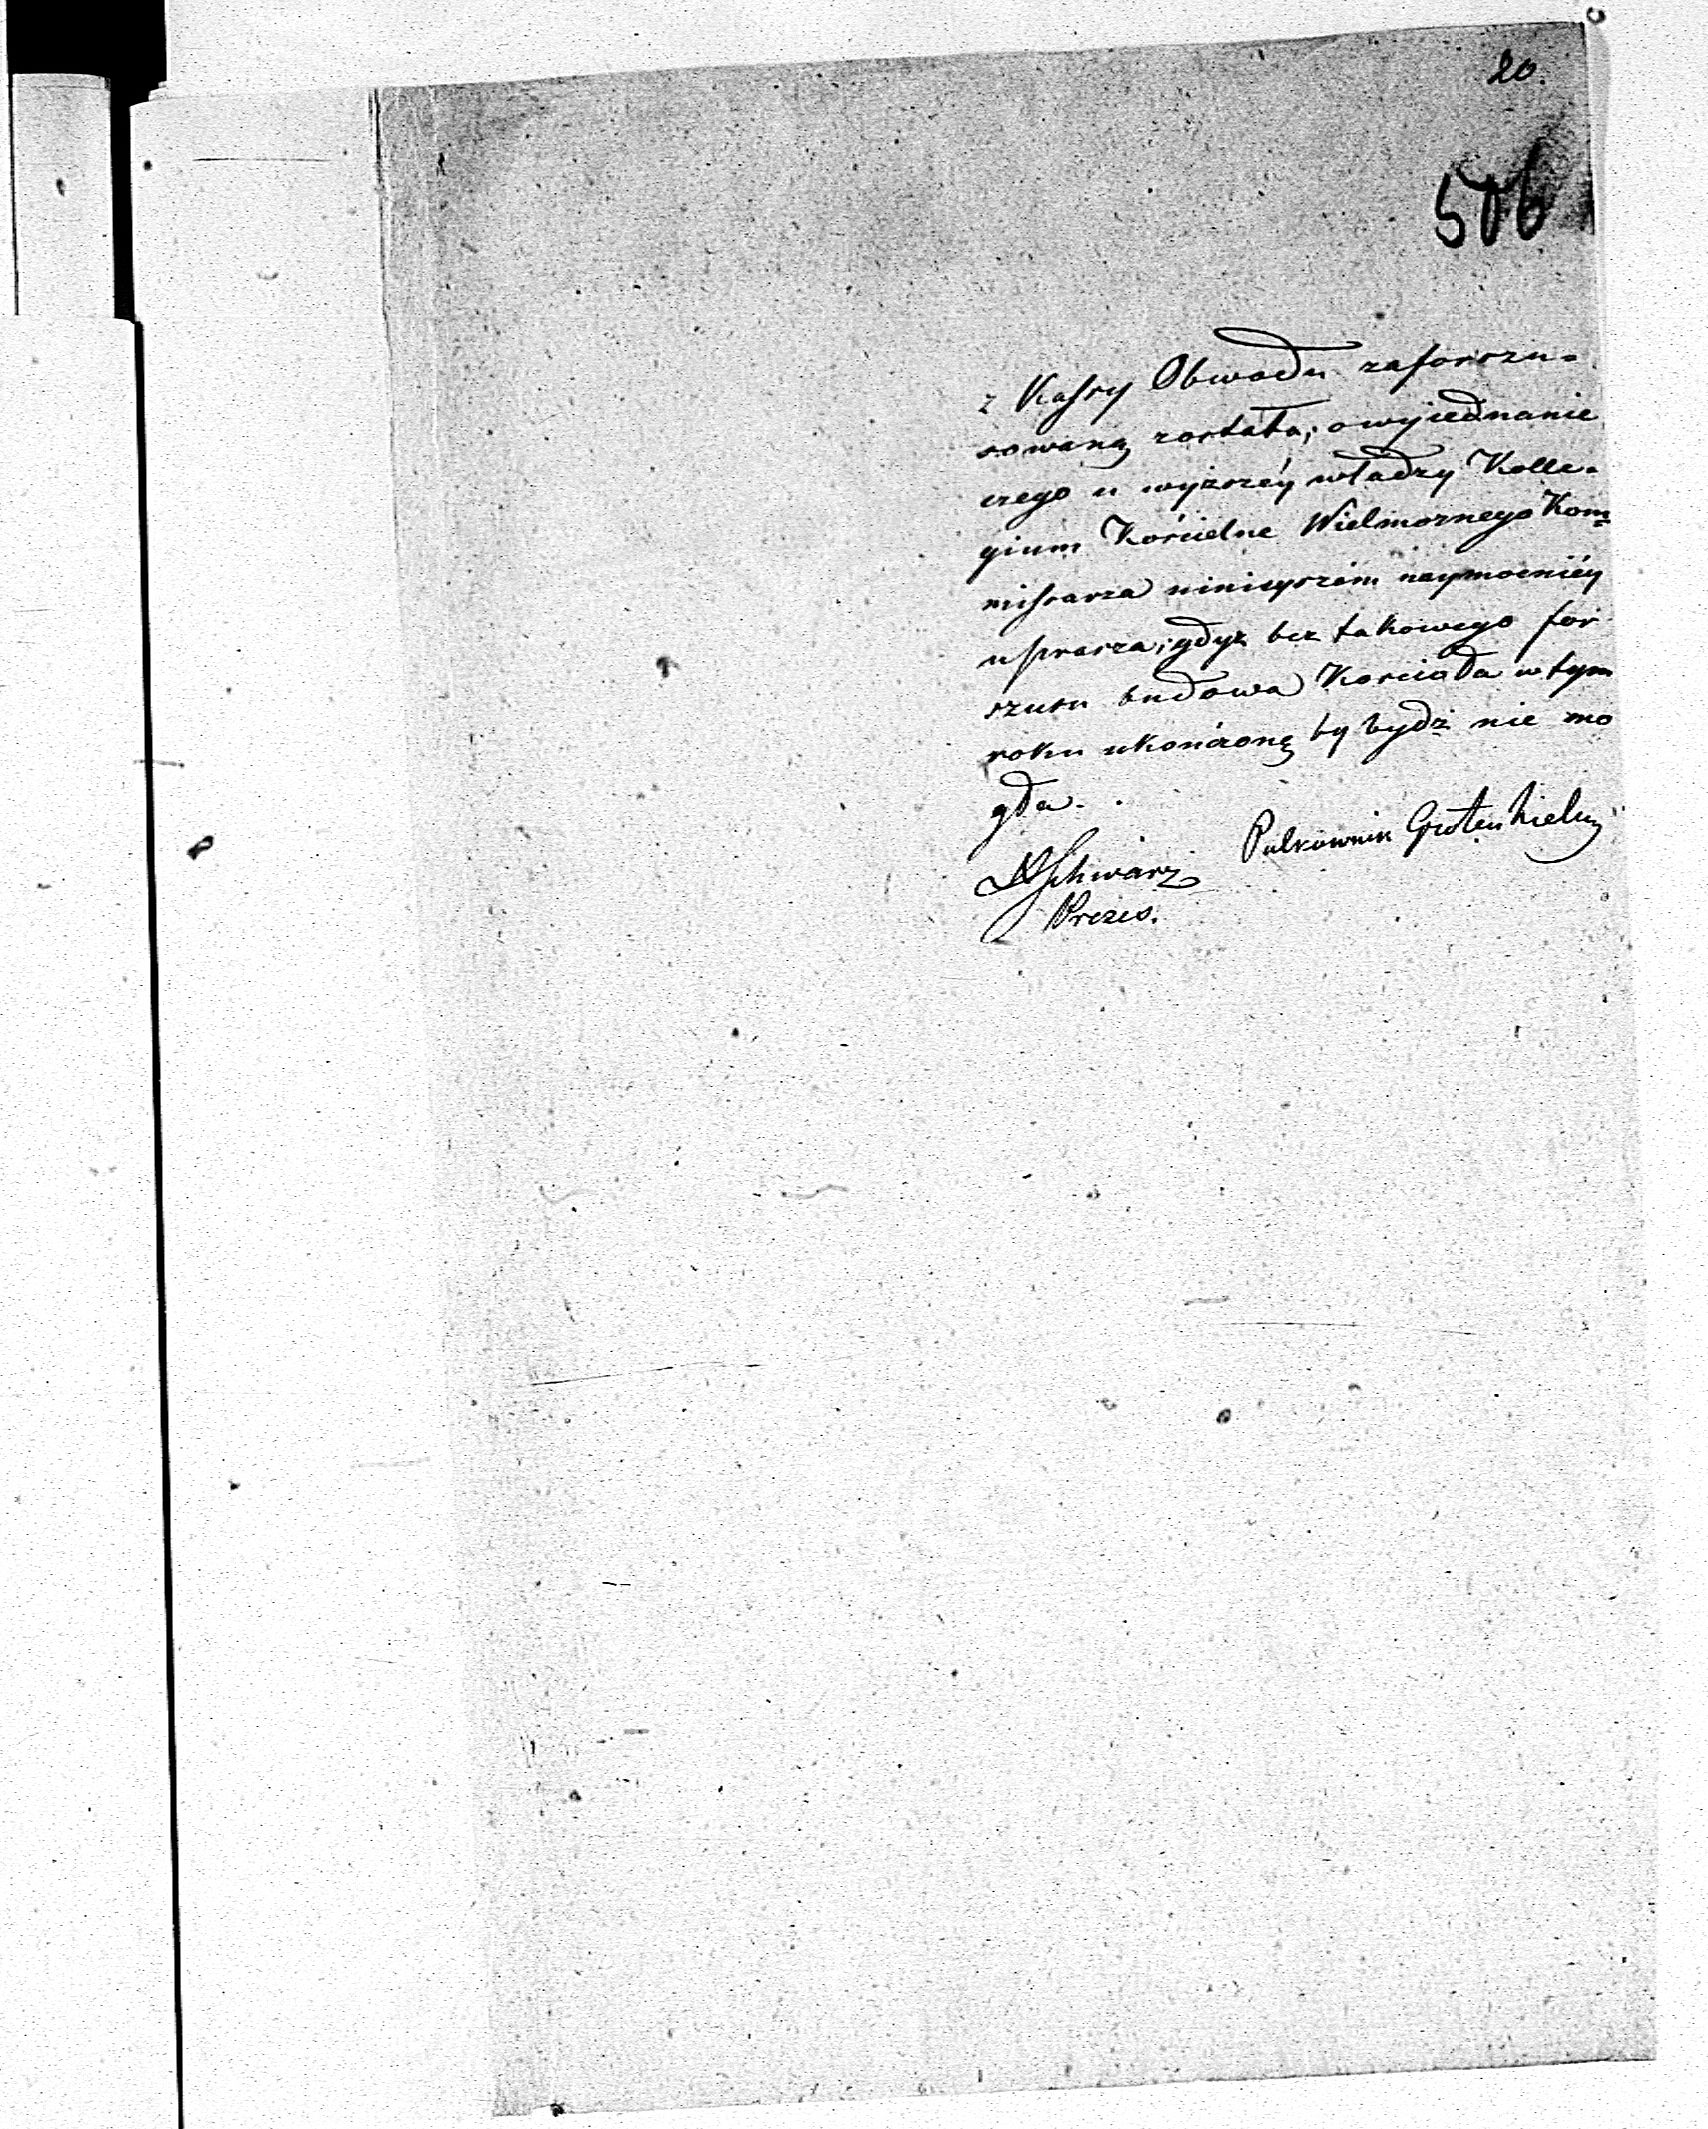 20.
506
z Kassy Obwodu zaforszu=
sowaną została; o wyiednanie
czego u wyższéy władzy Kolle=
gium Kościelne Wielmożnego Kom=
missarza ninieyszém naymocniéy
uprasza; gdyż bez takowego for
szusu budowa Kościoła w tym
roku ukończoną by bydź nie mo
gła.
Pułkownik
Schwarz
Prezes.